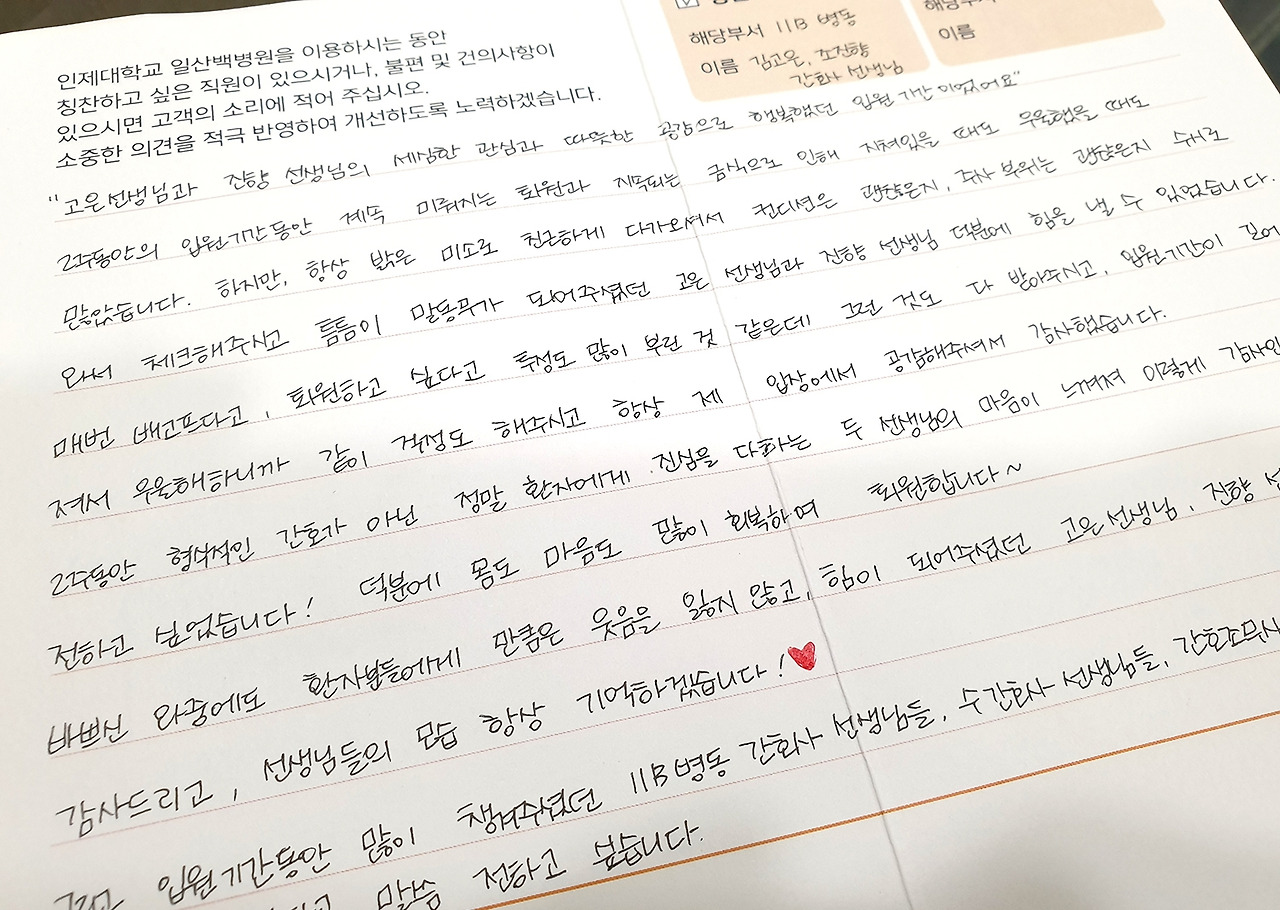 인제대학교 일산백병원을 이용하시는 동안
칭찬하고 싶은 직원이 있으시거나, 불편 및 건의사항이
있으시면 고객의 소리에 적어 주십시오.
소중한 의견을 적극 반영하여 개선하도록 노력하겠습니다.
해당부서 11B 병동
이름 김고은, 조진향
간호사 선생님
해당부서
이름
"고은선생님과 진향 선생님의 세심한 관심과 따뜻한 공감으로 행복했던 입원 기간이었어요"
2주동안의 입원기간동안 계속 미뤄지는 퇴원과 지속되는 금식으로 인해 지쳐있을 때도 우울했을 때도
많았습니다. 하지만, 항상 밝은 미소로 친근하게 다가오셔서 컨디션은 괜찮은지, 주사 부위는 괜찮은지 수시로
와서 체크해주시고 틈틈이 말동무가 되어주셨던 고은 선생님과 진향 선생님 덕분에 힘을 낼 수 있었습니다.
매번 배고프다고, 퇴원하고 싶다고 투정도 많이 부린 것 같은데 그런 것도 다 받아주시고, 입원기간이 길어
져서 우울해하니까 같이 걱정도 해주시고 항상 제 입장에서 공감해주셔서 감사했습니다.
2주동안 형식적인 간호가 아닌 정말 환자에게 진심을 다하는 두 선생님의 마음이 느껴져 이렇게 감사인
전하고 싶었습니다! 덕분에 몸도 마음도 많이 회복하며 퇴원합니다~
바쁘신 와중에도 환자분들에게 만큼은 웃음을 잃지 않고, 힘이 되어주셨던 고은선생님, 진향
감사드리고, 선생님들의 모습 항상 기억하겠습니다!
입원기간동안 많이 챙겨주셨던 11B병동 간호사 선생님들, 수간호사 선생님들, 간호조무사
말씀 전하고 싶습니다.